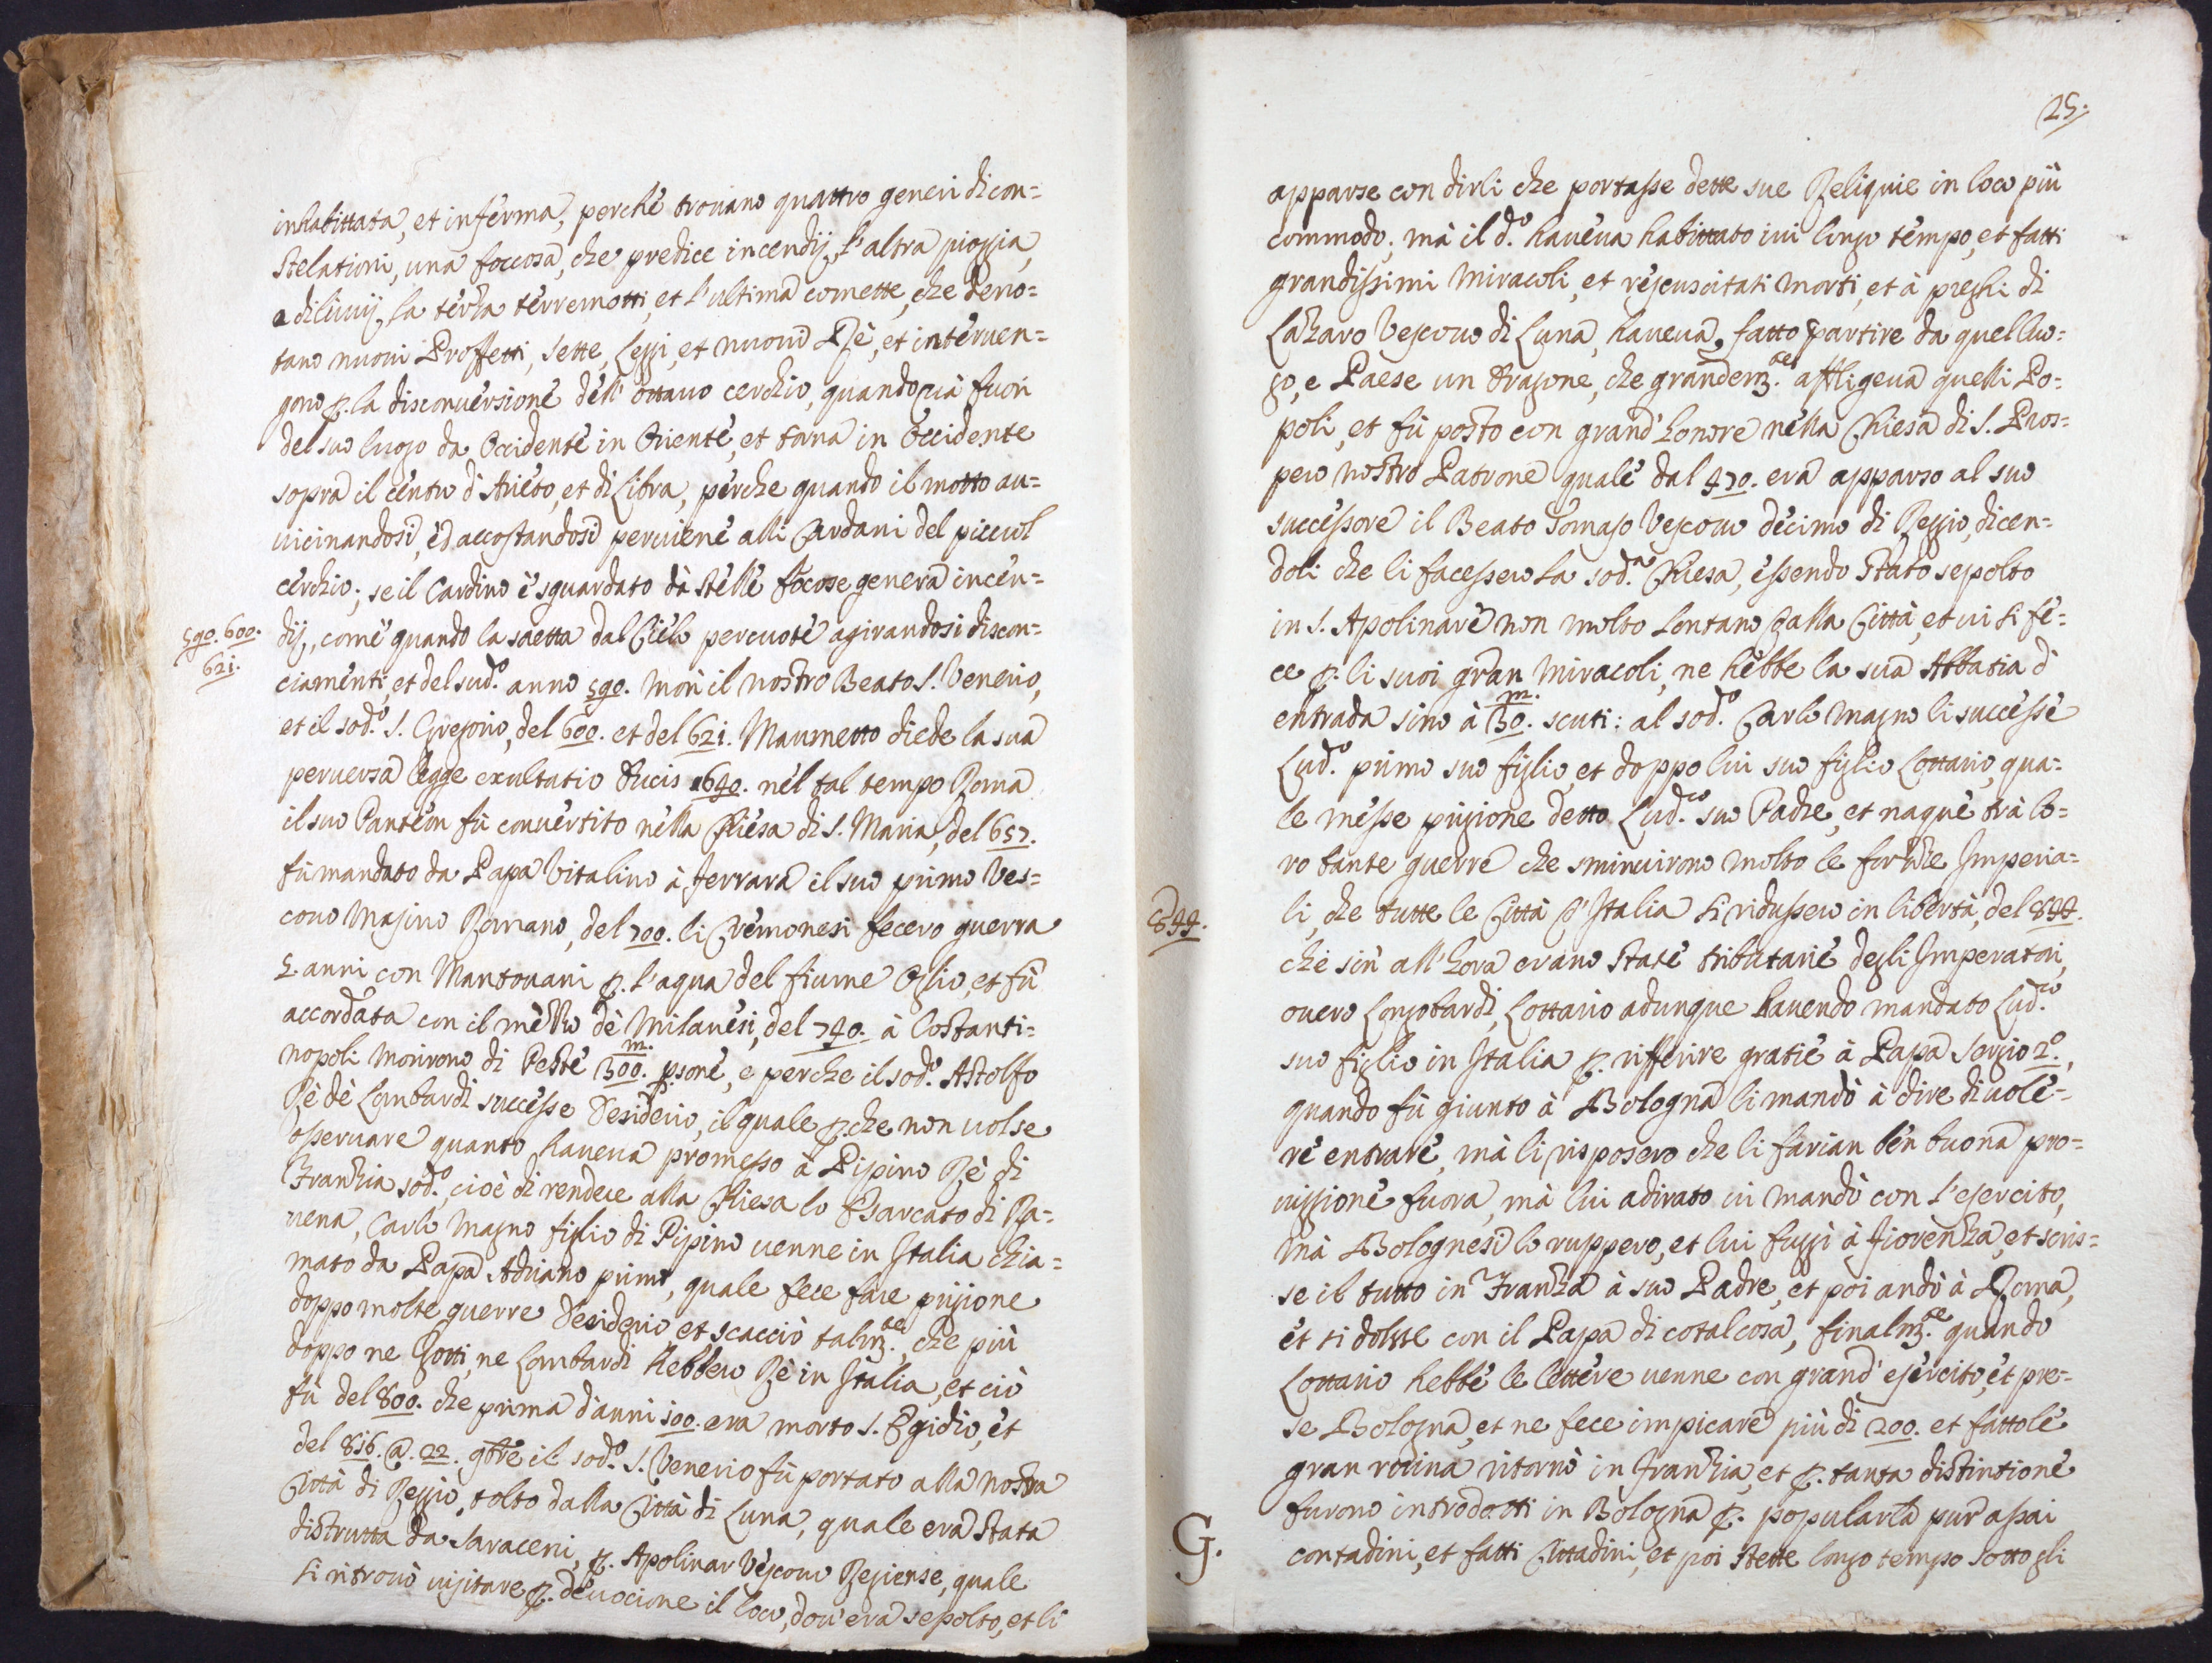 inhabittata, et inferma, perche trovano quattro generi di con=
stelationi, una foccosa, che predice incendij, l'altra pioggia,
a diluvij, la terza terremotti, et l'ultima comette, che deno=
tano nuovi Proffetti, sette, Leggi, et nuovo Rè, et interven=
gono p. la disconversione dell' ottavo cerchio, quando và fuori
del suo luogo da Occidente in Oriente, et torna in Occidente
sopra il centro d'Arieto, et di Libra, perche quando il motto av=
vicinandosi, ed accostandosi perviene alli Cardani del piccol
cerchio; se il Cardino è sguardato da stelle focose genera incen=
590. 600.
621.
dij, come quando la saetta dal Cielo percuote agirandosi discon=
ciamenti, et del sud.o anno 590. morì il nostro Beato S. Venerio,
et il sod.o S. Gregorio, del 600. et del 621. Maumetto diede la sua
perversa legge exultatio Crucis 640. nel tal tempo Roma
il suo Panteon fù convertito nella Chiesa di S. Maria, del 657.
fù mandato da Papa Vitalino à Ferrara il suo primo Ves=
covo Marino Romano, del 700. li Cremonesi fecero guerra
2. anni con Mantovani p. l'aqua del fiume Oglio, et fù
accordata con il mezzo dè Milanesi, del 740. à Costanti=
nopoli morirono di Peste 300.m psone, e perche il sod.o Astolfo
Rè dè Lombardi successe Desiderio, il quale p.che non volse
osservare quanto haveva promesso à Pipino Rè di
Franzia sod.o, cioè di rendere alla Chiesa lo Esarcato di Ra=
vena, Carlo Magno figlio di Pipino venne in Italia chia=
mato da Papa Adriano primo, quale fece fare prigione
doppo molte guerre Desiderio, et scacciò talm.te, che più
doppo ne Gotti, ne Lombardi hebbero Rè in Italia, et ciò
fù del 800. che prima d'anni 100. era morto S. Egidio, et
del 816. @. 22. 9bre il sod.o S. Venerio fù portato alla nostra
Città di Reggio, tolto dalla Città di Luna, quale era stata
distrutta da Saraceni, p. Apolinar Vescovo Regiense, quale
si ritrovò visitare p. devocione il loco, dov'era sepolto, et li
25.
apparse con dirli che portasse dette sue Reliquie in loco più
commodo; mà il d.o haveva habittato ivi longo tempo, et fatti
grandissimi miracoli, et rescuscitati morti, et à preghi di
Lazaro Vescovo di Luna, haveva fatto partire da quel luo=
go, e Paese un dragone, che grandem.te affligeva quelli Po=
poli, et fù posto con grand' honore nella Chiesa di S. Pros=
pero nostro Patrone quale dal 470. era apparso al suo
successore il Beato Tomaso Vescovo decimo di Reggio, dicen=
doli che li facessero la sod.a Chiesa, essendo stato sepolto
in S. Apolinare non molto lontano dalla Città, et vi si fe=
ce p. li suoi gran miracoli, ne hebbe la sua Abbatia d'
entrada sino à 30.m scuti: al sod.o Carlo Magno li successe
Lud.o primo suo figlio, et doppo lui suo figlio Lottario, qua=
le messe prigione detto Lud.co suo Padre, et naque trà lo=
ro tante guerre che sminuirono molto le forze Imperia=
844.
li, che tutte le Città d'Italia si ridussero in libertà, del 844.
che sin all'hora erano state tributarie degli Imperatori,
overo Longobardi, Lottario adunque havendo mandato Lud.co
suo figlio in Italia p. rifferire gratie à Papa Sergio 2.o,
quando fù giunto à Bologna li mandò à dire di vole=
re entrare, mà li risposero che li farian ben buona pro=
vissione fuora, mà lui adirato vi mandò con l'esercito,
mà Bolognesi lo ruppero, et lui fuggì à Fiorenza, et scris=
se il tutto in Franza à suo Padre, et poi andò à Roma,
et si dolse con il Papa di cotal cosa, finalm.te quando
Lottario hebbe le lettere venne con grand' esercito, et pre=
se Bologna, et ne fece impicare più di 200. et fattole
gran rovina ritornò in Franzia, et p. tanta distintione
furono introdotti in Bologna p. popularla pur assai
G.
contadini, et fatti Cittadini, et poi stette longo tempo sotto gli